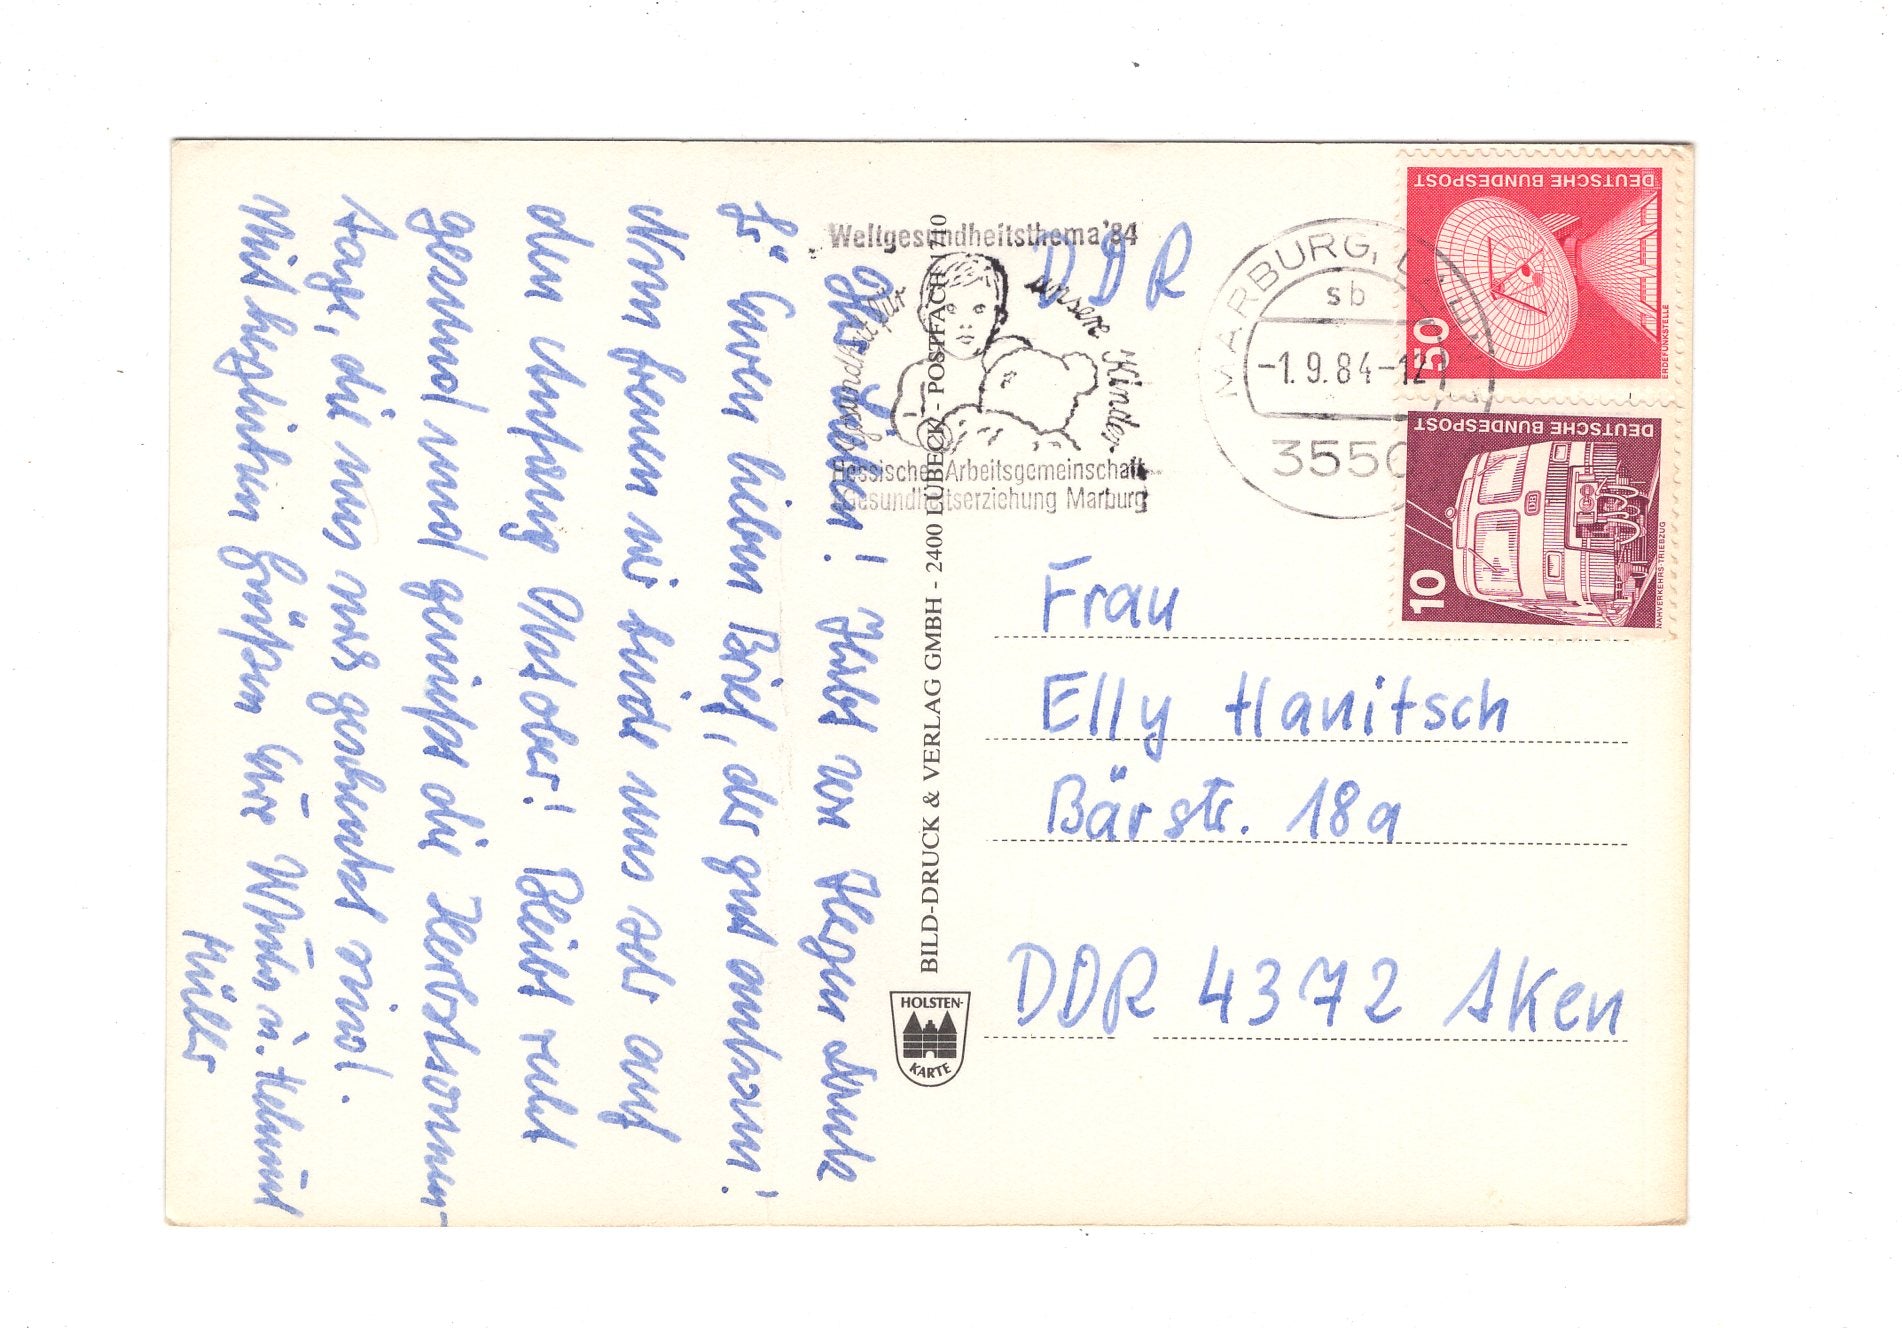 Ihr Lieben! Habt von Herzen Dank
für Euren lieben Brief, der gut ankam!
Nun freuen wir beide uns sehr auf
den Anfang Oktober! Bleibt recht
gesund und genießt die Herbstsonnen-
tage, die uns noch geschenkt sind.
Mit herzlichen Grüßen Eure u. Helmut
Müller
BILD-DRUCK & VERLAG GMBH - 2400 LÜBECK - POSTFACH 1710
HOLSTEN-
KARTE
Weltgesundheitsthema '84
Gesundheit für unsere Kinder
Hessische Arbeitsgemeinschaft
Gesundheitserziehung Marburg
DDR
MARBURG, LAHN 1
sb
-1.9.84-12
3550
DEUTSCHE BUNDESPOST
50
ERDEFUNKSTELLE
DEUTSCHE BUNDESPOST
10
NAHVERKEHRS-TRIEBZUG
Frau
Elly Hanitsch
Bärstr. 18a
DDR 4372 Aken